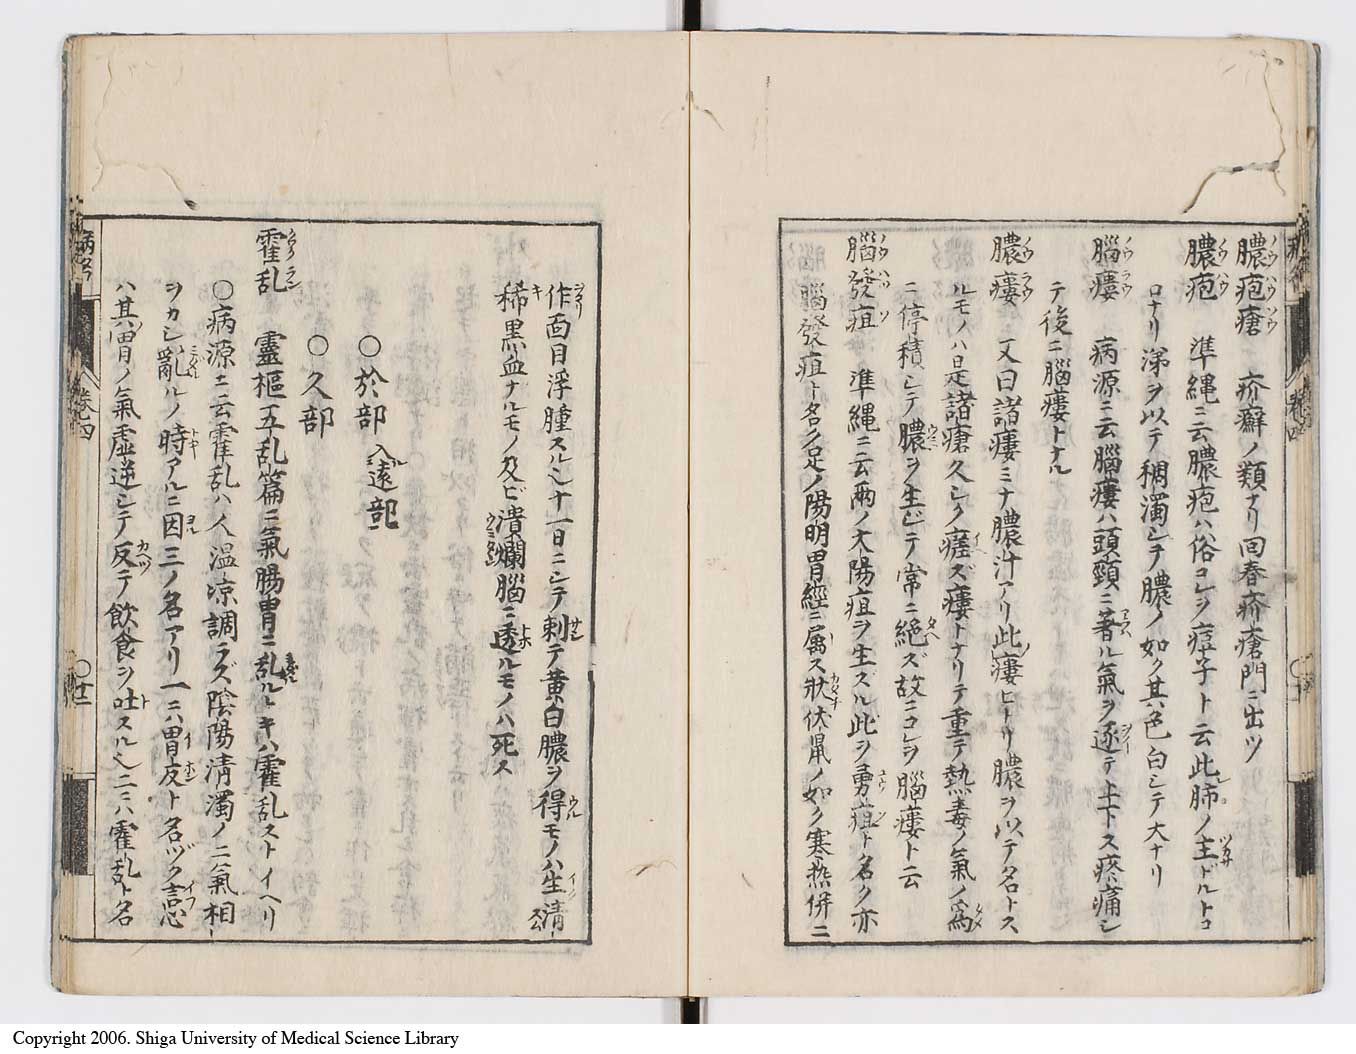 膿疱瘡 疥癬ノ類ナリ回春疥瘡門ニ出ツ
膿疱 準縄ニ云膿疱ハ俗コレヲ痘子ト云此肺ノ主ドルトコ
ロナリ涕ヲ以テ稠濁シテ膿ノ如ク其色白シテ大ナリ
腦瘻 病源ニ云腦瘻ハ頭頸ニ著ル氣ヲ逐テ上下ス疼痛シ
テ後ニ腦瘻トナル
膿瘻 又曰諸瘻ミナ膿汁アリ此瘻ヒトリ膿ヲ以テ名トス
ルモノハ是諸瘡久シク瘥ズ瘻トナリテ重テ熱毒ノ氣ノ為
ニ停積シテ膿ヲ生ジテ常ニ絶ズ故ニコレヲ腦瘻ト云
腦發疽 準縄ニ云兩ノ太陽疽ヲ生ズル此ヲ勇疽ト名ク亦
腦發疽ト名ク足ノ陽明胃經ニ属ス狀伏鼠ノ如ク寒熱併ニ
作面目浮腫スル七十一日ニシテ刺テ黄白膿ヲ得モノハ生清
稀黒血ナルモノ及ビ潰爛腦ニ透ルモノハ死ス
〇於部 入遠部
〇久部
霍乱 靈樞五乱篇ニ氣腸胃ニ乱ルトキハ霍乱ストイヘリ
〇病源ニ云霍乱ハ人温凉調ラズ陰陽清濁ノ二氣相
ヲカシ亂ルノ時アルニ因三ノ名アリ一ニハ胃反ト名ヅク言心
ハ其胃ノ氣虚逆シテ反テ飲食ヲ吐スル也二ニハ霍乱ト名
巻四
〇廿二
Copyright 2006. Shiga University of Medical Science Library